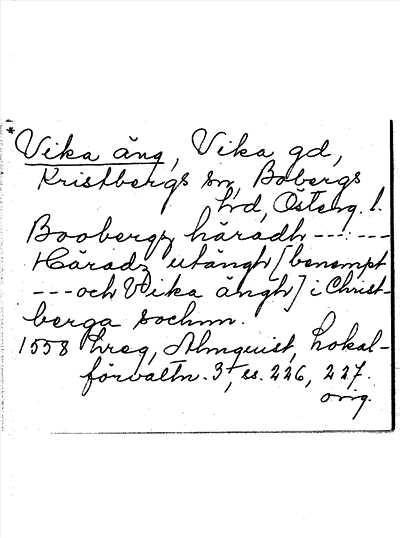 * Vika äng, Vika gd,
Kristbergs sn, Bobergs
hd, Österg. l.
Boobergz häradh ---:---
Häradz utängh [benempt
--- och Wika ängh] i Christ-
berga sochnn.
1558 hreg, Almquist, Lokal-
förvaltn. 3, ss. 226, 227.
orig.